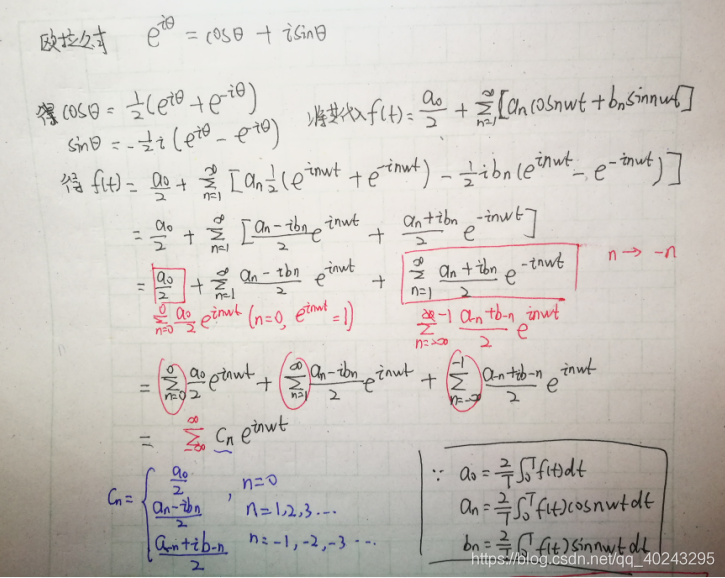 欧拉公式 e^{iθ} = cosθ + isinθ
得 cosθ = 1/2(e^{iθ} + e^{-iθ}) 将其代入 f(t) = a0/2 + ∑_{n=1}^{∞}[an cosnwt + bn sinnwt]
sinθ = -1/2 i(e^{iθ} - e^{-iθ})
得 f(t) = a0/2 + ∑_{n=1}^{∞}[an 1/2(e^{inwt} + e^{-inwt}) - 1/2 ibn(e^{inwt} - e^{-inwt})]
= a0/2 + ∑_{n=1}^{∞}[(an-ibn)/2 e^{inwt} + (an+ibn)/2 e^{-inwt}]
= a0/2 + ∑_{n=1}^{∞} (an-ibn)/2 e^{inwt} + ∑_{n=1}^{∞} (an+ibn)/2 e^{-inwt} n → -n
∑_{n=0}^{0} a0/2 e^{inwt} (n=0, e^{inwt}=1)
= ∑_{n=0}^{0} a0/2 e^{inwt} + ∑_{n=1}^{∞} (an-ibn)/2 e^{inwt} + ∑_{n=-∞}^{-1} (a-n+ib-n)/2 e^{inwt}
= ∑_{-∞}^{∞} Cn e^{inwt}
Cn = { a0/2 , n=0
(an-ibn)/2 n=1,2,3...
(a-n+ib-n)/2 n=-1,-2,-3...
∵ a0 = 2/T ∫_0^T f(t)dt
an = 2/T ∫_0^T f(t)cosnwtdt
bn = 2/T ∫_0^T f(t)sinnwtdt
https://blog.csdn.net/qq_40243295